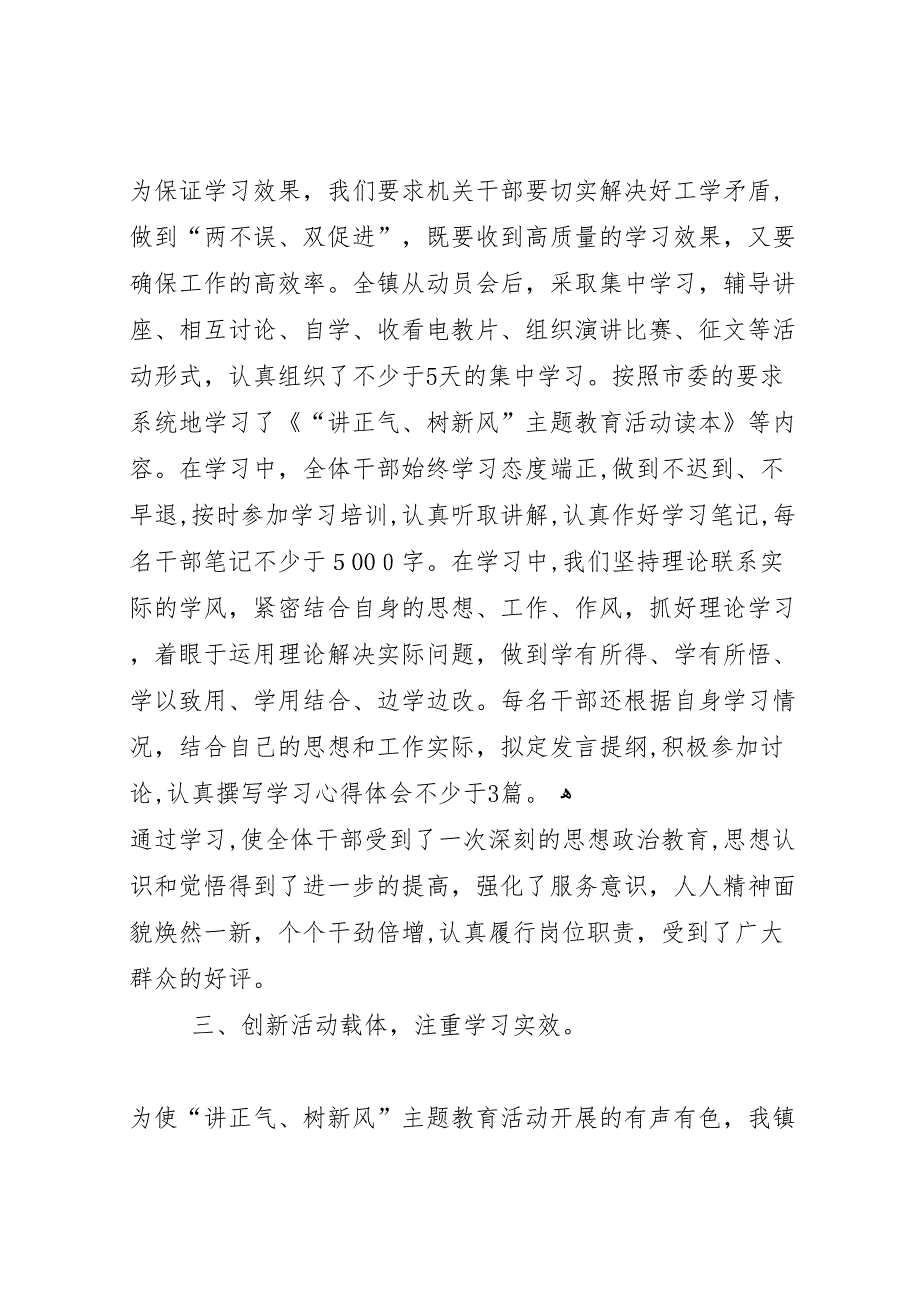 为保证学习效果，我们要求机关干部要切实解决好工学矛盾,
做到“两不误、双促进”，既要收到高质量的学习效果，又要
确保工作的高效率。全镇从动员会后，采取集中学习，辅导讲
座、相互讨论、自学、收看电教片、组织演讲比赛、征文等活
动形式，认真组织了不少于5天的集中学习。按照市委的要求
系统地学习了《“讲正气、树新风”主题教育活动读本》等内
容。在学习中，全体干部始终学习态度端正,做到不迟到、不
早退,按时参加学习培训,认真听取讲解,认真作好学习笔记,每
名干部笔记不少于５000字。在学习中,我们坚持理论联系实
际的学风，紧密结合自身的思想、工作、作风，抓好理论学习
，着眼于运用理论解决实际问题，做到学有所得、学有所悟、
学以致用、学用结合、边学边改。每名干部还根据自身学习情
况，结合自己的思想和工作实际，拟定发言提纲,积极参加讨
论,认真撰写学习心得体会不少于3篇。 ﻫ
通过学习,使全体干部受到了一次深刻的思想政治教育,思想认
识和觉悟得到了进一步的提高，强化了服务意识，人人精神面
貌焕然一新，个个干劲倍增,认真履行岗位职责，受到了广大
群众的好评。
三、创新活动载体，注重学习实效。
为使“讲正气、树新风”主题教育活动开展的有声有色，我镇